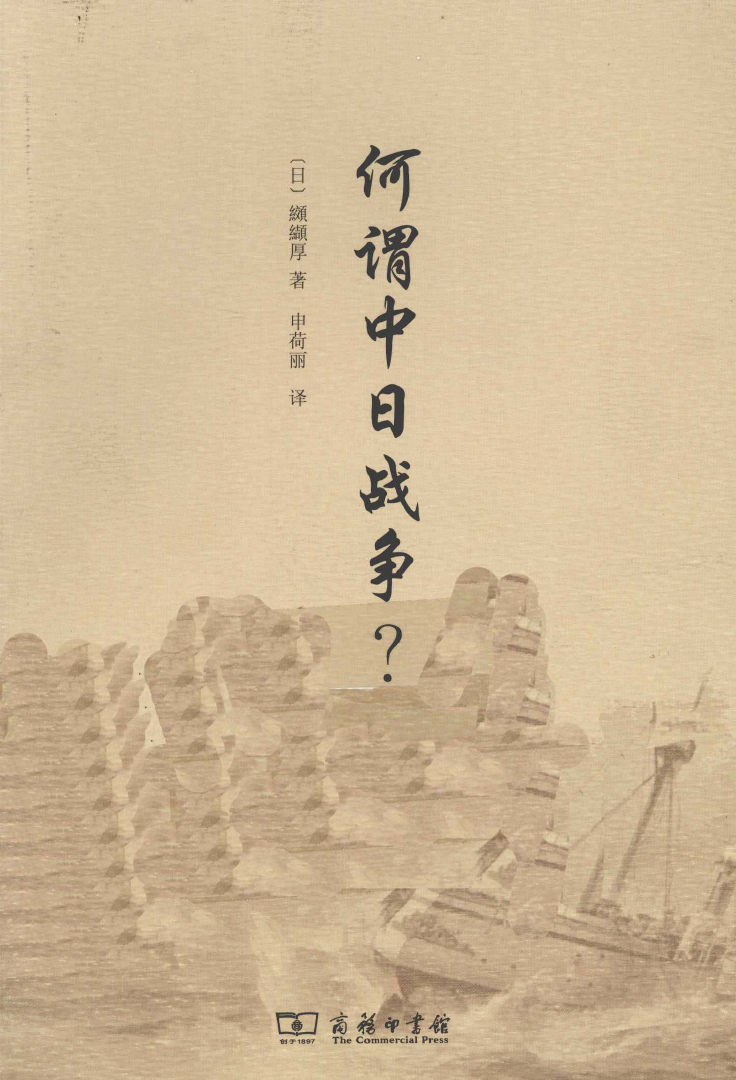 何谓中日战争？
〔日〕纐纈厚 著 申荷丽 译
创于1897
商務印書館
The Commercial Press